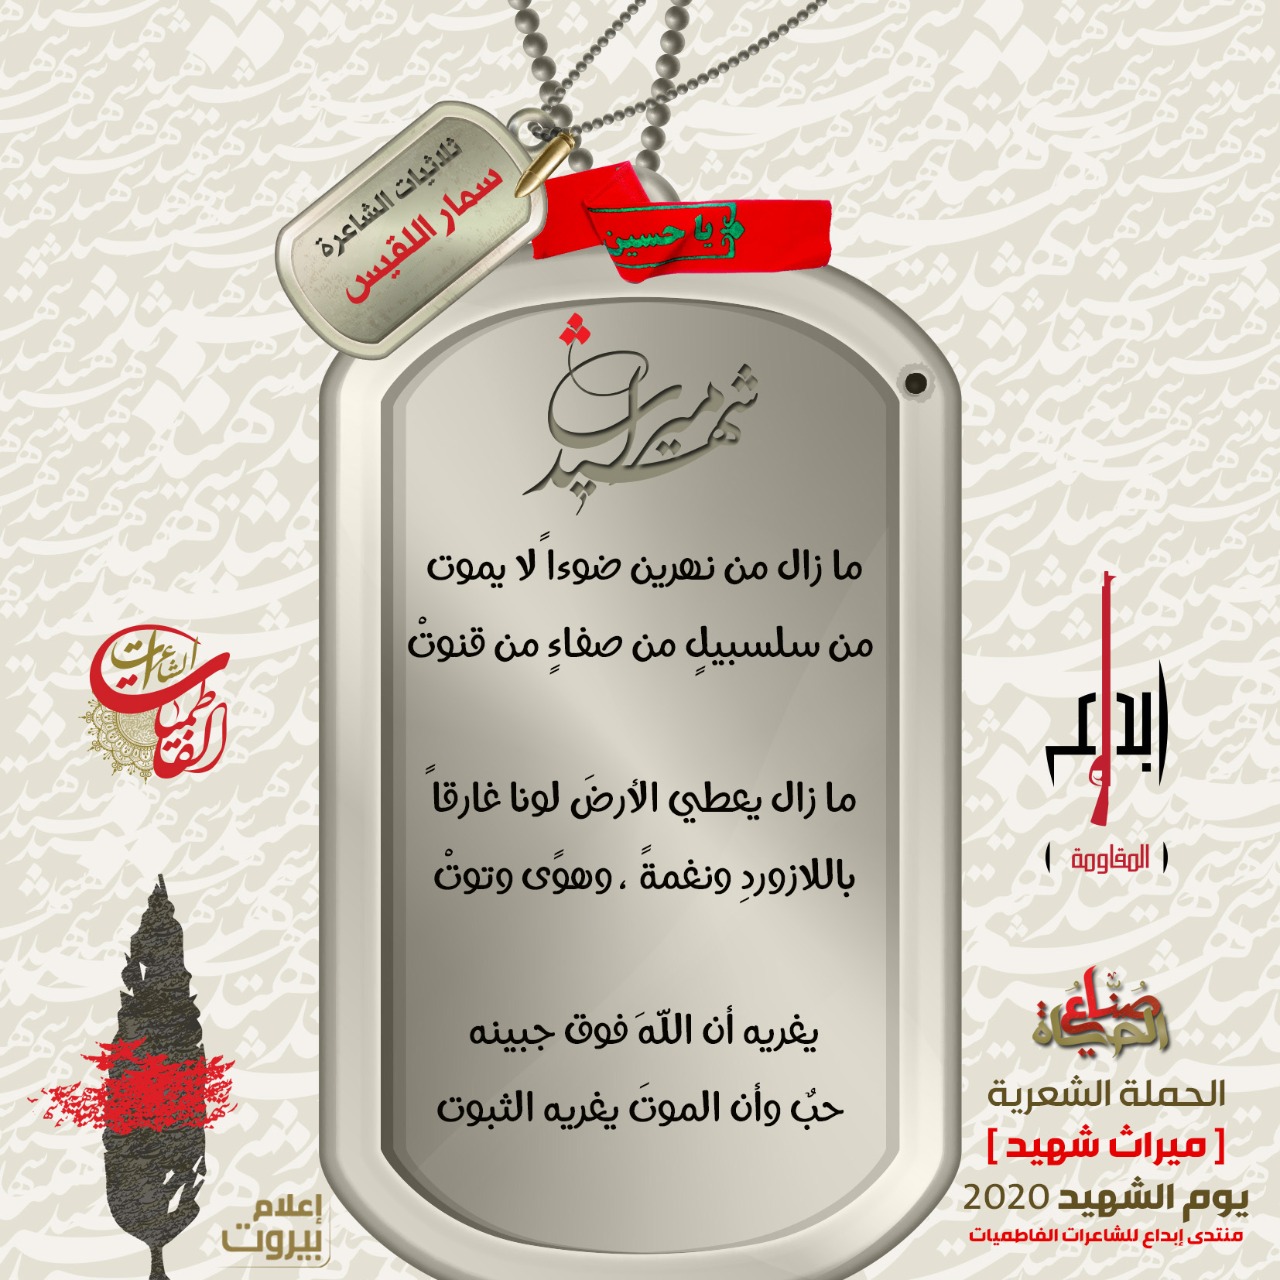 ثلاثيات الشاعرة
سمار اللقيس
يا حسين
ميراث
شهيد
ما زال من نهرين ضوءاً لا يموت
من سلسبيلٍ من صفاءٍ من قنوتْ
ما زال يعطي الأرضَ لونا غارقاً
باللازوردِ ونغمةً ، وهوًى وتوتْ
يغريه أن اللّهَ فوق جبينه
حبٌ وأن الموتَ يغريه الثبوت
الشاعرات
الفاطميات
إبداع
( المقاومة )
صُنَّاعُ
الحياة
الحملة الشعرية
[ ميراث شهيد ]
يوم الشهيد 2020
منتدى إبداع للشاعرات الفاطميات
إعلام
بيروت